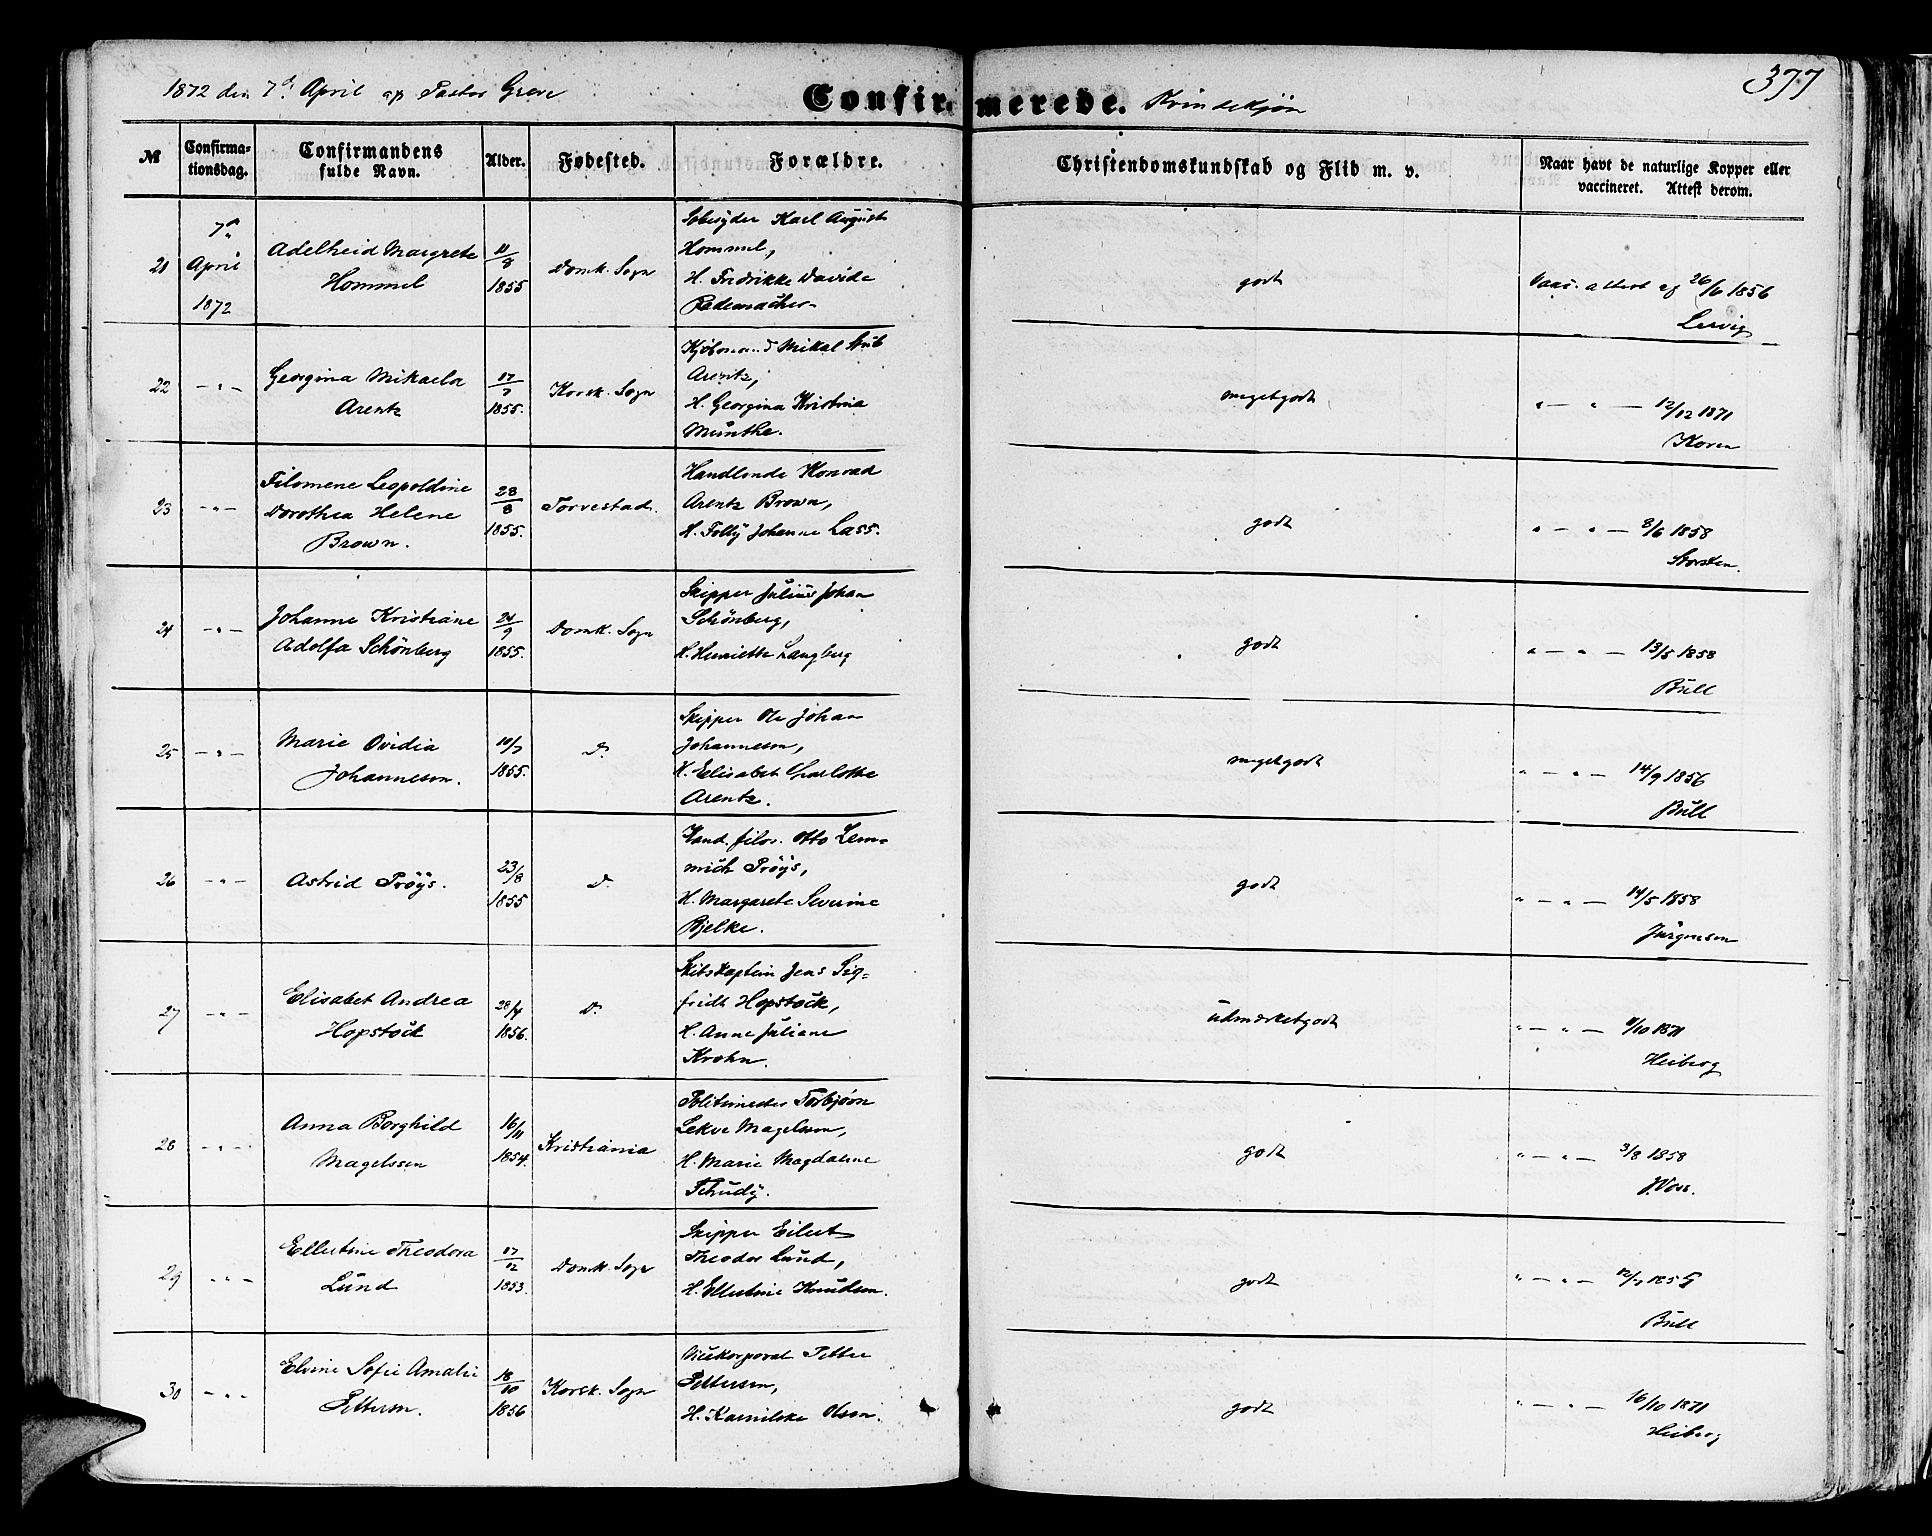 377
1872 den 7d April af Pastor Greve
Confirmerede. Kvindekjøn
№
Confirmationsdag.
Confirmandens fulde Navn.
Alder.
Fødested.
Forældre.
Christendomskundskab og Flid m. v.
Naar havt de naturlige Kopper eller vaccineret. Attest derom.
21
7d April 1872
Adelheid Margrete
Hommel
11/8 1855
Domk. Sogn
Karl August
Hommel,
H. Fredrikke Davide
Rademacher
godt
Vacc. attest af 26/6 1856
Lervig
22
— " —
Georgina Mikaela
Arentz
17/7 1855.
Korsk. Sogn
Kjöbmand Mikal Stub
Arentz,
H. Georgina Kristina
Münthe.
megetgodt
" — " — 12/12 1871
Koren
23
— " —
Filomene Leopoldine
Dorothea Helene
Brown.
28/8 1855.
Torvestad.
Handlende Konrad
Arentz Brown,
H. Folly Johanne Lass.
godt
" — " — 8/6 1858
Storsten.
24
— " —
Johanne Kristiane
Adolfa Schönberg
24/9 1855.
Domk. Sogn
Skipper Julius Johan
Schönberg,
H. Henriette Langberg
godt
" — " — 13/5 1858
Büll
25
— " —
Marie Ovidia
Johanneson.
10/7 1855.
Do
Skipper Ole Johan
Johanneson,
H. Elisabet Charlotte
Arentz.
megetgodt
" — " — 14/9 1856
Büll
26
— " —
Astrid Pröÿs.
23/8 1855
Do
Kand. filos. Otto Lem-
mich Pröÿs,
H. Margarete Severine
Bjelke.
godt
" — " — 14/5 1858
Jürgensen
27
— " —
Elisabet Andrea
Hopstock
28/4 1856.
Do
Skibskaptein Jens Sig-
fridt Hopstock,
H. Anne Juliane
Krohn.
udmærketgodt
" — " — 9/10 1871
Heiberg
28
— " —
Anna Borghild
Magelssen
16/11 1854.
Kristiania
Politimester Torbjørn
Lekve Magelssen,
H. Marie Magdalene
Schudÿ.
godt
" — " — 3/8 1858
J. Voss.
29
— " —
Ellertine Theodora
Lünd
17/12 1853.
Domk. Sogn
Skipper Eilert
Theodor Lünd,
H. Ellertine Knudsen.
godt
" — " —
Büll
30
— " —
Elvine Sofie Amalie
Pettersen.
18/10 1856
Korsk. Sogn
Vicekorporal Petter
Pettersen,
H. Karnilske Olsen.
godt
" — " — 16/10 1871
Heiberg